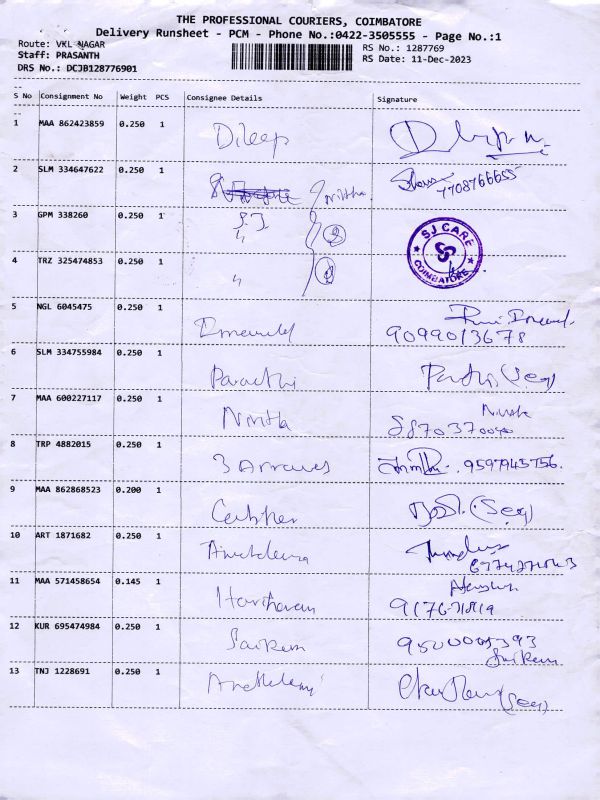 THE PROFESSIONAL COURIERS, COIMBATORE
Delivery Runsheet - PCM - Phone No.:0422-3505555 - Page No.:1
Route: VKL NAGAR
Staff: PRASANTH
DRS No.: DCJB128776901
RS No.: 1287769
RS Date: 11-Dec-2023
S No Consignment No Weight PCS Consignee Details Signature
1 MAA 862423859 0.250 1 Dileep
2 SLM 334647622 0.250 1 Nirtha
7708766655
3 GPM 338260 0.250 1 SJ
SJ CARE
COIMBATORE
4 TRZ 325474853 0.250 1 "
5 NGL 6045475 0.250 1
9099013678
6 SLM 334755984 0.250 1 Parvathi
7 MAA 600227117 0.250 1 Nirtha
8 TRP 4882015 0.250 1 3 Arrows 9597945756.
9 MAA 862868523 0.200 1 (Seq)
10 ART 1871682 0.250 1
11 MAA 571458654 0.145 1 Hariharan
12 KUR 695474984 0.250 1 Sairam
Sairam
13 TNJ 1228691 0.250 1 (Seq)